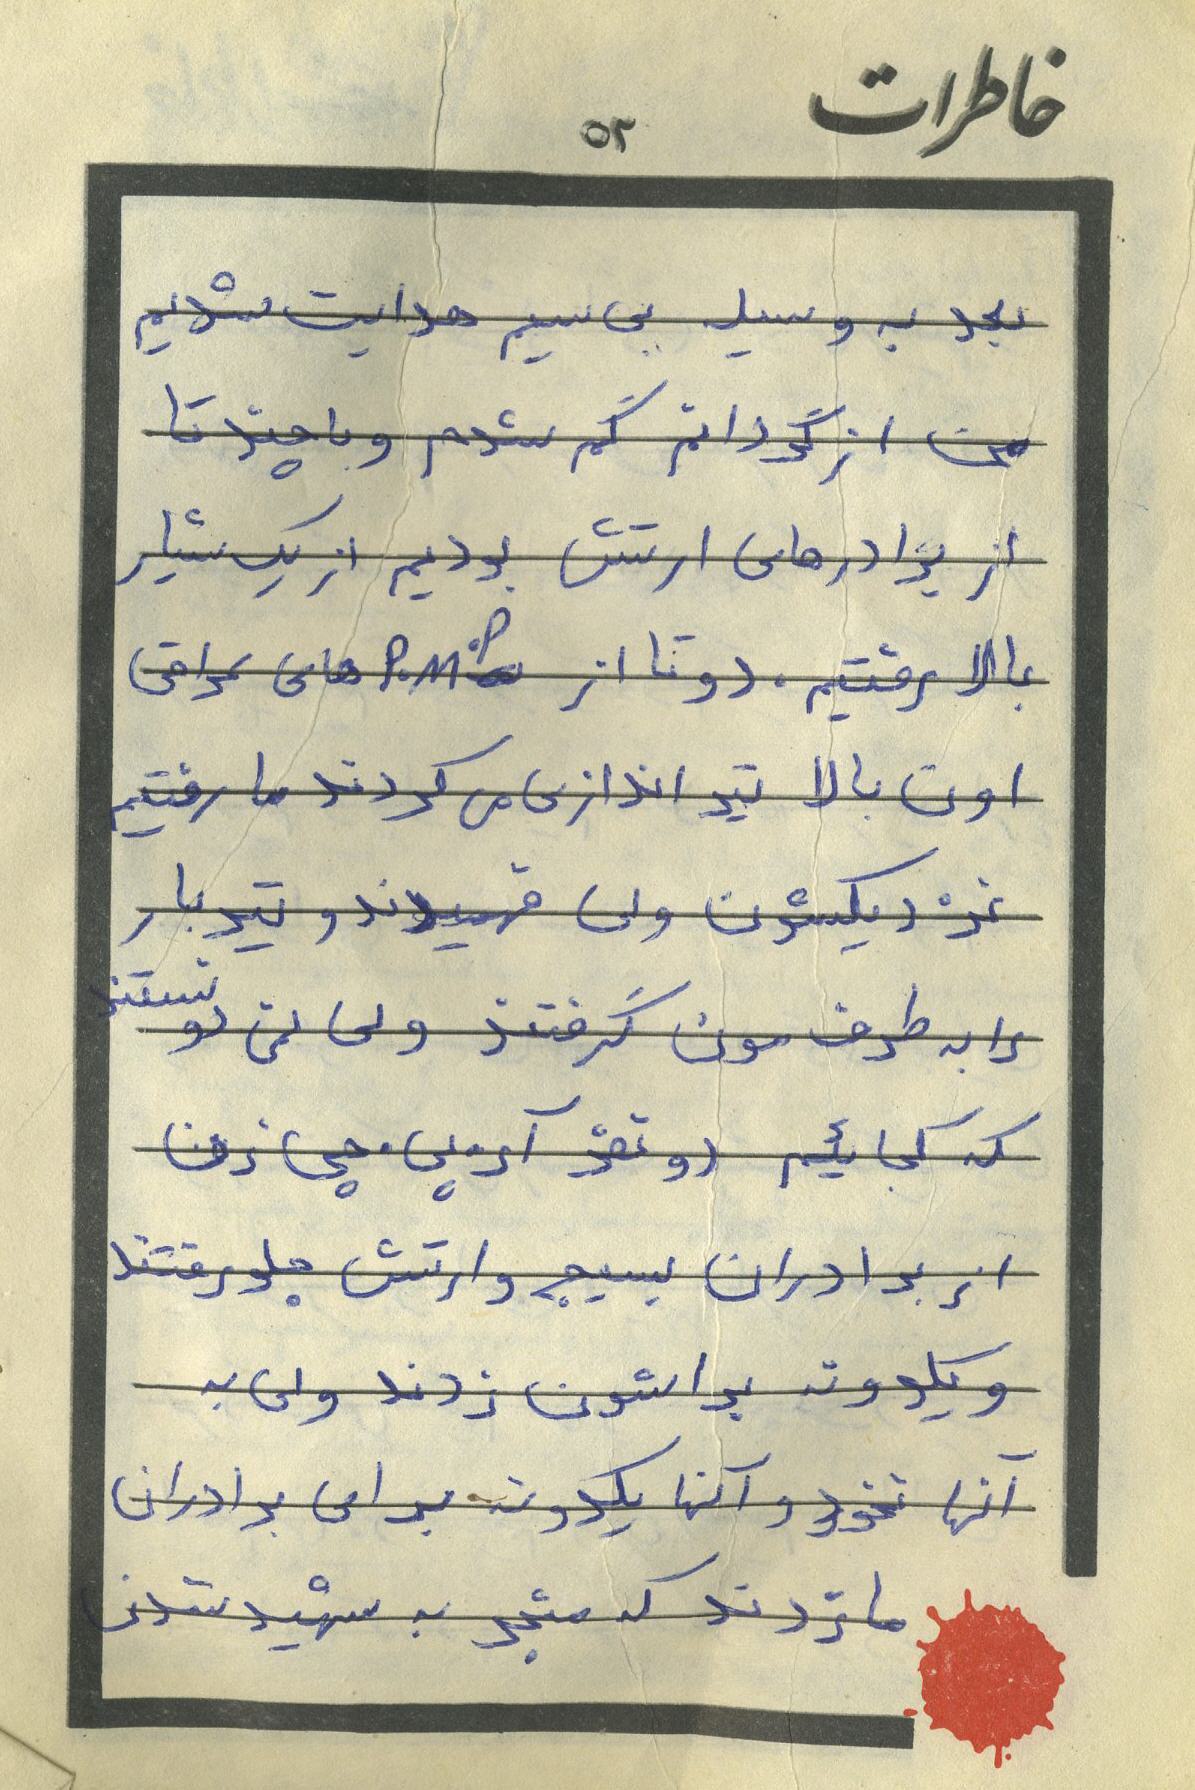 خاطرات
۵۲
بعد به وسیله بی سیم هدایت شدیم
من از گردانم گم شدم و با چند تا
از برادرهای ارتش بودیم از یک شیار
بالا رفتیم . دو تا از P.M.P های عراقی
اون بالا تیر اندازی می کردند ما رفتیم
نزدیکشون ولی فهمیدند و تیر بار
را به طرف مون گرفتند ولی نمی تونستند
که کجا یئیم دو نفر آر.پی.چی زدن
از برادران بسیج و ارتش جلو رفتند
و یکدونه براشون زدند ولی به
آنها نخورد و آنها یکدونه برای برادران
ما زدند که منجر به شهید شدن